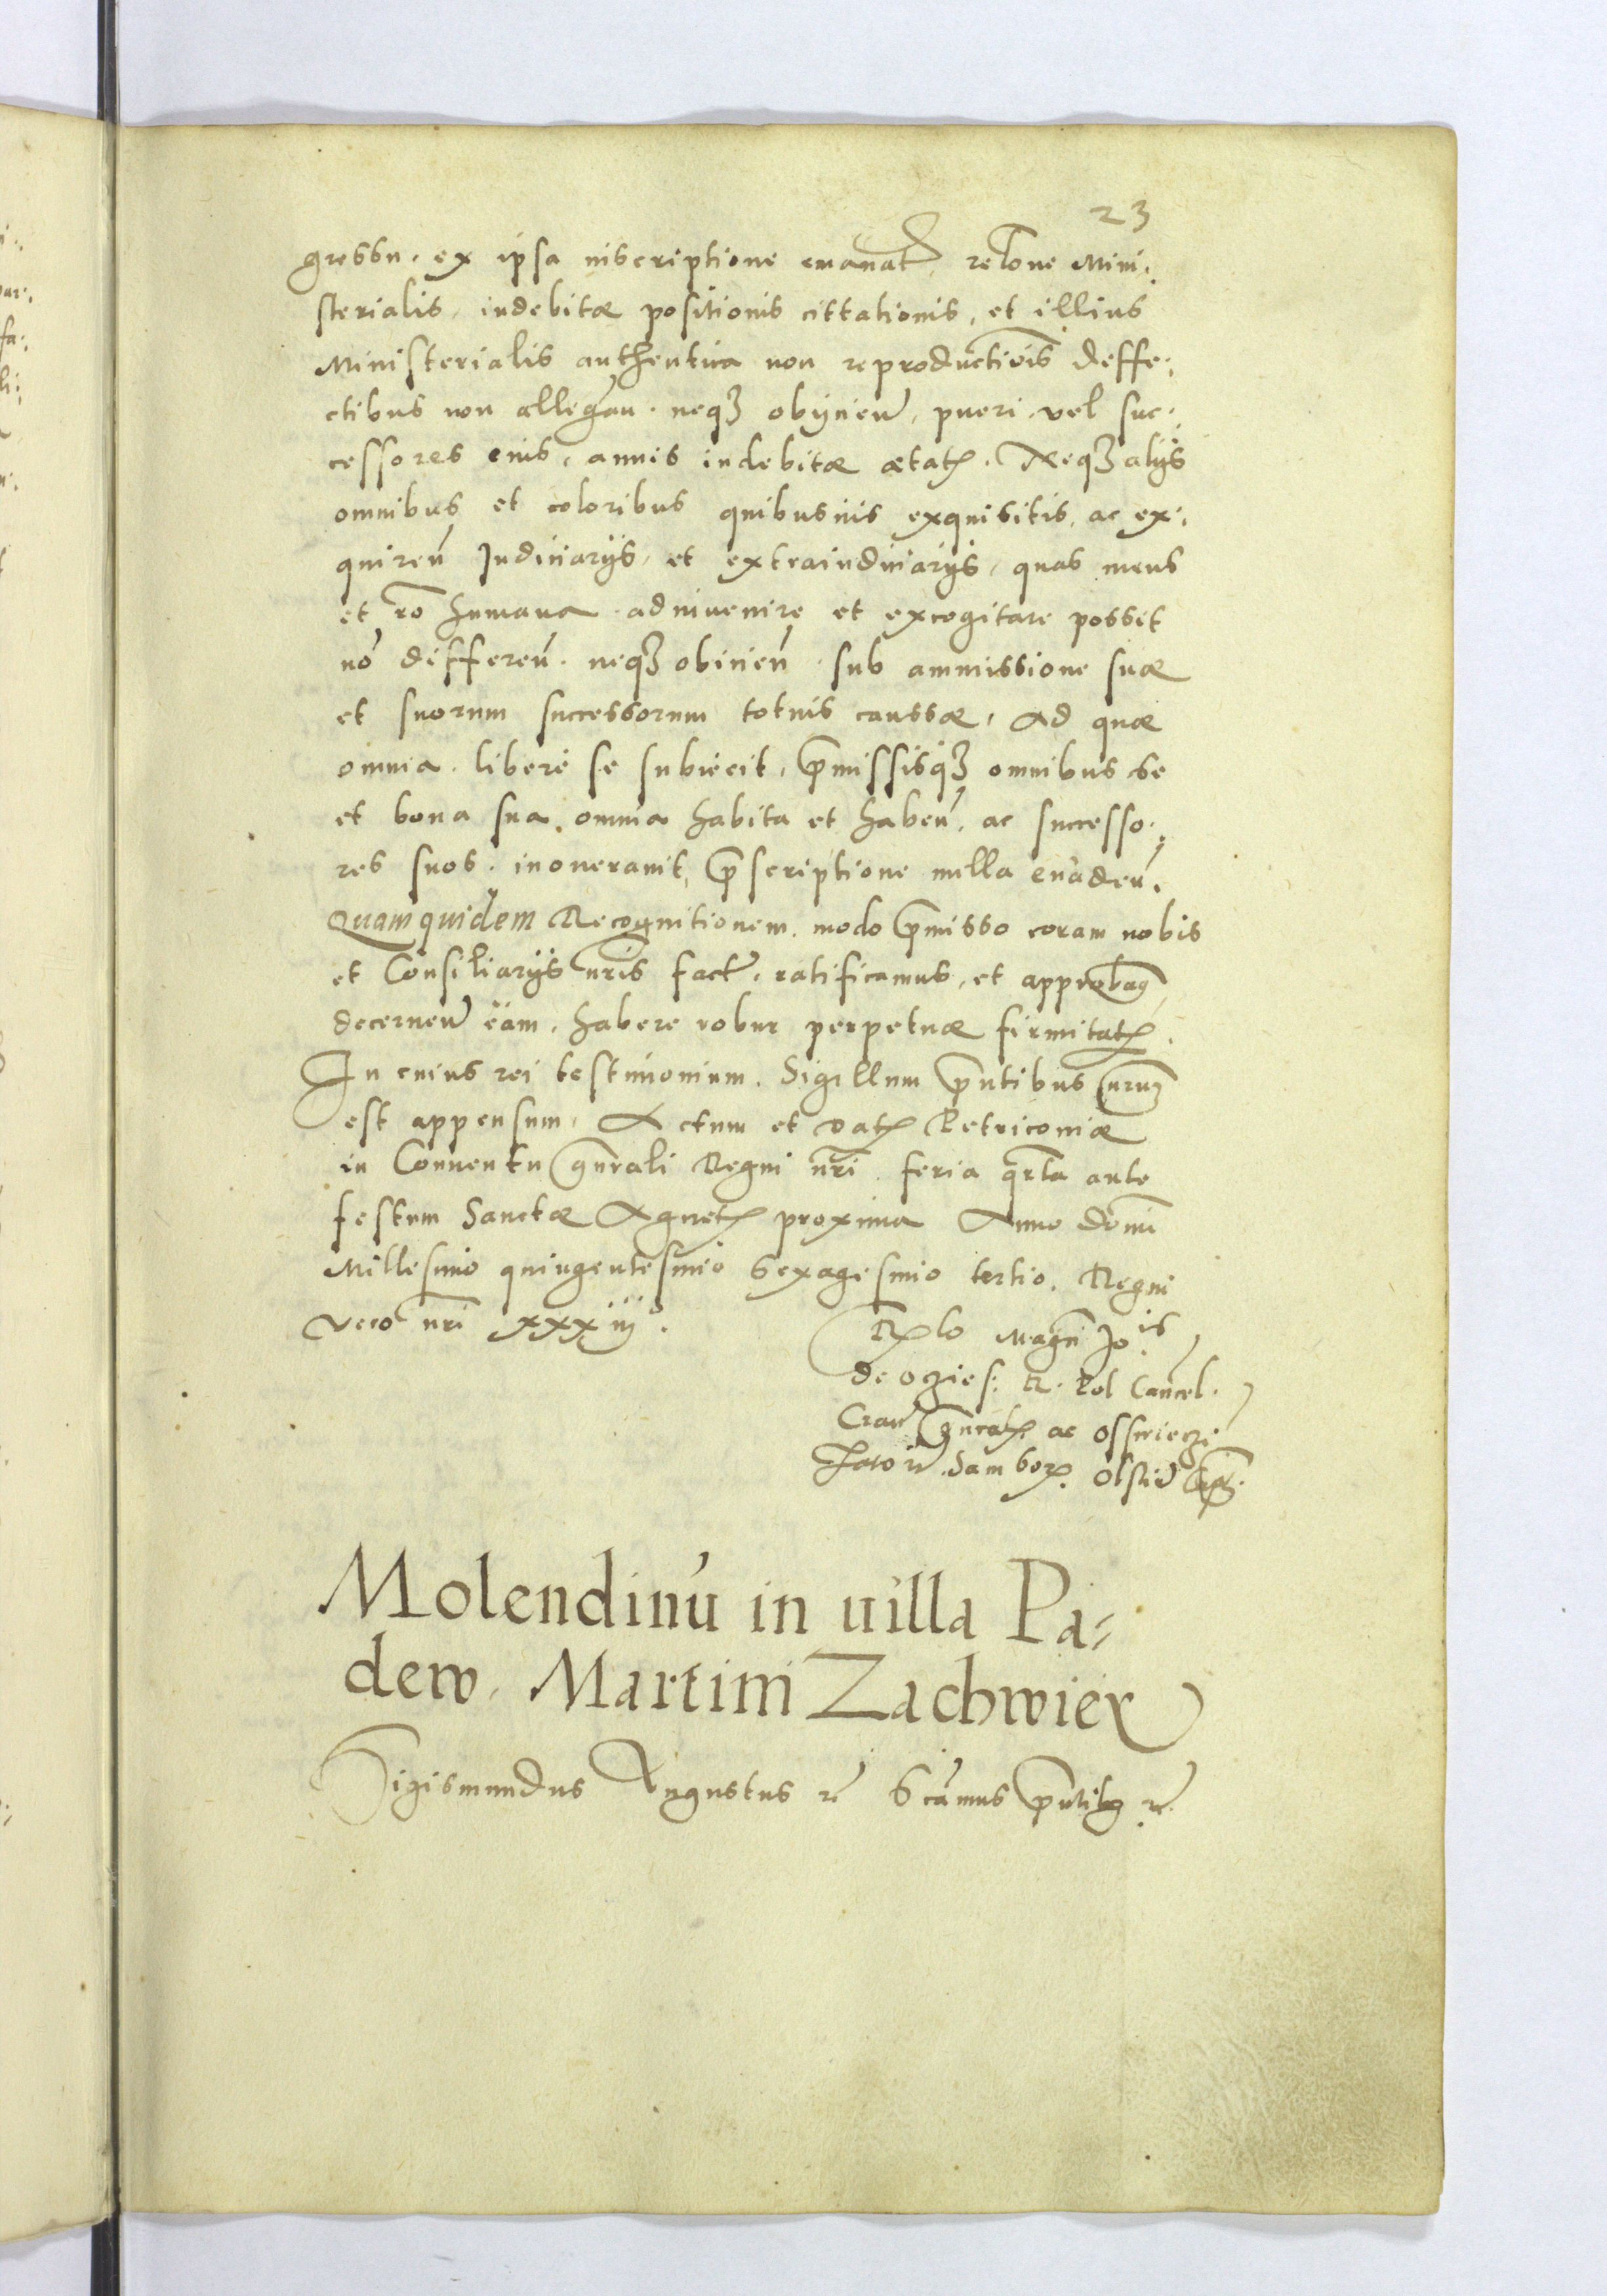 23
gressu. ex ipsa inscriptione emanat relone Mini:
sterialis, indebitæ positionis cittationis, et illius
Ministerialis authentica non reproductiōis deffe:
ctibus non allegān. neqȝ obijcieñ, pueri vel suc:
cessores eius, annis indebitæ ætatꝭ. Neqȝ alijs
omnibus et coloribus quibusuis exquisitis, ac ex:
quireñ Judiciarijs, et extraiudiciarijs, quas mens
et rō humana adinuenire et excogitare possit
nō differeñ. neqȝ obicieñ sub ammissione suæ
et suorum successorum totius caussæ, Ad quæ
omnia libere se subiecit, p̄missisqȝ omnibus se
et bona sua omnia habita et habeñ, ac successo:
res suos. inonerauit, p̄scriptione nulla euadeñ.
Quam quidem Recognitionem. modo p̄misso coram nobis
et Consiliarijs nr̄is fact̄. ratificamus, et approbam9
decerneñ eam, habere robur perpetuæ firmitatꝭ.
In cuius rei testimonium. Sigillum p̄ntibus nr̄um
est appensum. Actum et datꝭ Petricouiæ
in Conuentu gn̄rali Regni nr̄i. feria qr̄ta ante
festum Sanctæ Agnetꝭ proxima Anno domī
Millesimo quingentesimo sexagesimo tertio. Regni
vero nr̄i xxxiij°.
Rlo Magci Jois
de oczies: R. Pol Cancel.
Crac̄ gn̄ralꝭ ac osswiecz:
Zatorīe. Sambor. olstiñ Cap.
Molendinū in uilla Pa-
dew. Martini Zachwiey
Sigismundus Augustus rc̄ Scāmus p̄ntib9 rc̄.